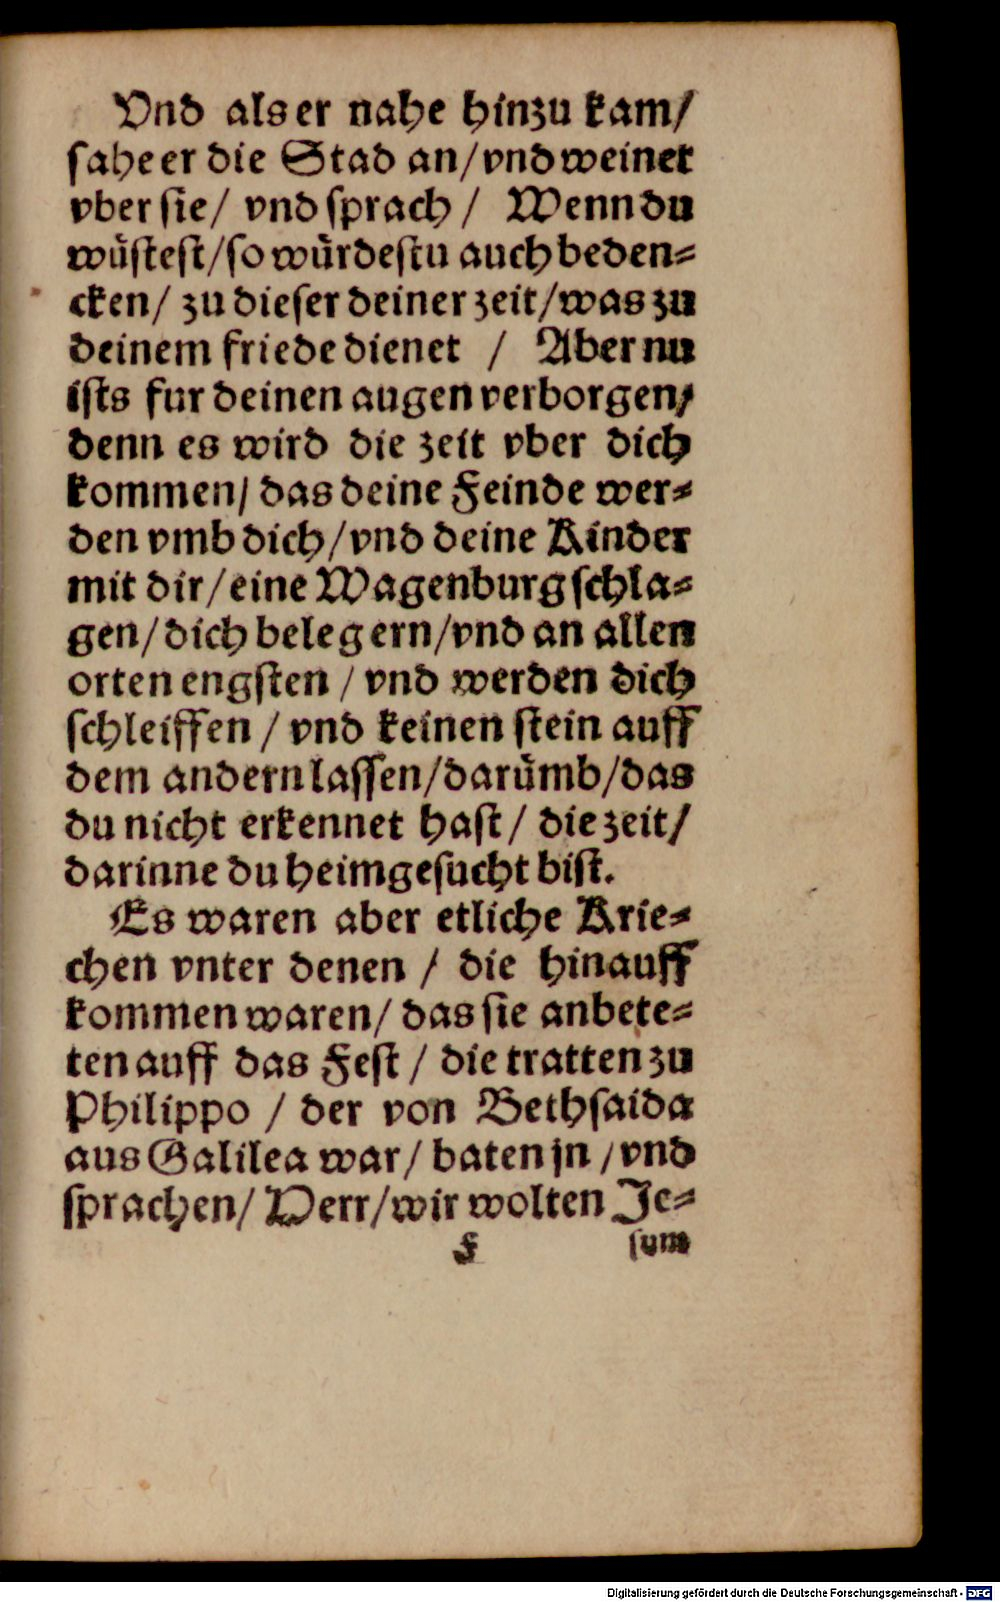 Vnd als er nahe hinzu kam/
ſahe er die Stad an/ vnd weinet
vber ſie/ vnd ſprach / Wenn du
wuͤſteſt/ ſo wuͤrdeſtu auch beden⸗
cken/ zu dieſer deiner zeit/ was zu
deinem friede dienet / Aber nu
iſts fur deinen augen verborgen/
denn es wird die zeit vber dich
kommen/ das deine Feinde wer⸗
den vmb dich/ vnd deine Kinder
mit dir/ eine Wagenburg ſchla⸗
gen/ dich belegern/ vnd an allen
orten engſten / vnd werden dich
ſchleiffen / vnd keinen ſtein auff
dem andern laſſen/ daruͤmb/ das
du nicht erkennet haſt/ die zeit/
darinne du heimgeſucht biſt.
Es waren aber etliche Krie⸗
chen vnter denen / die hinauff
kommen waren/ das ſie anbete⸗
ten auff das Feſt / die tratten zu
Philippo / der von Bethſaida
aus Galilea war/ baten jn / vnd
ſprachen/ Herr/ wir wolten Je⸗
F ſum
Digitalisierung gefördert durch die Deutsche Forschungsgemeinschaft - DFG